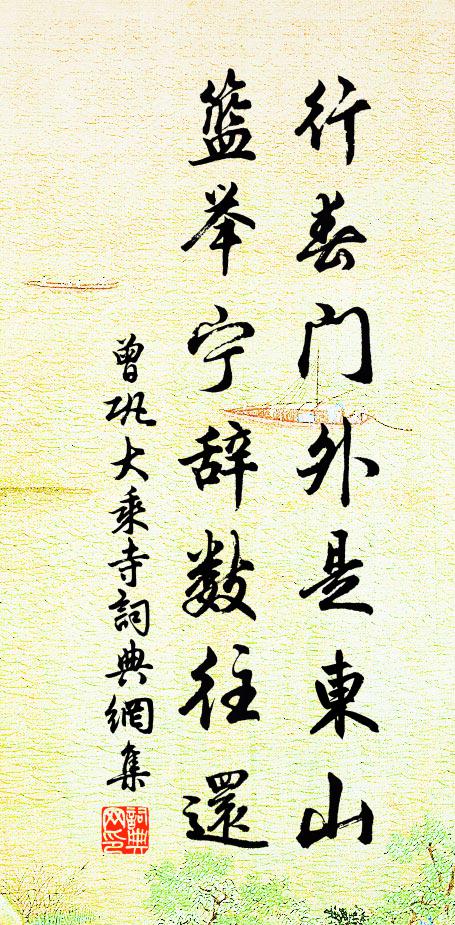 行春门外是東山
籃举宁辞数往還
曾巩大乘寺詞典網集
詞典網印